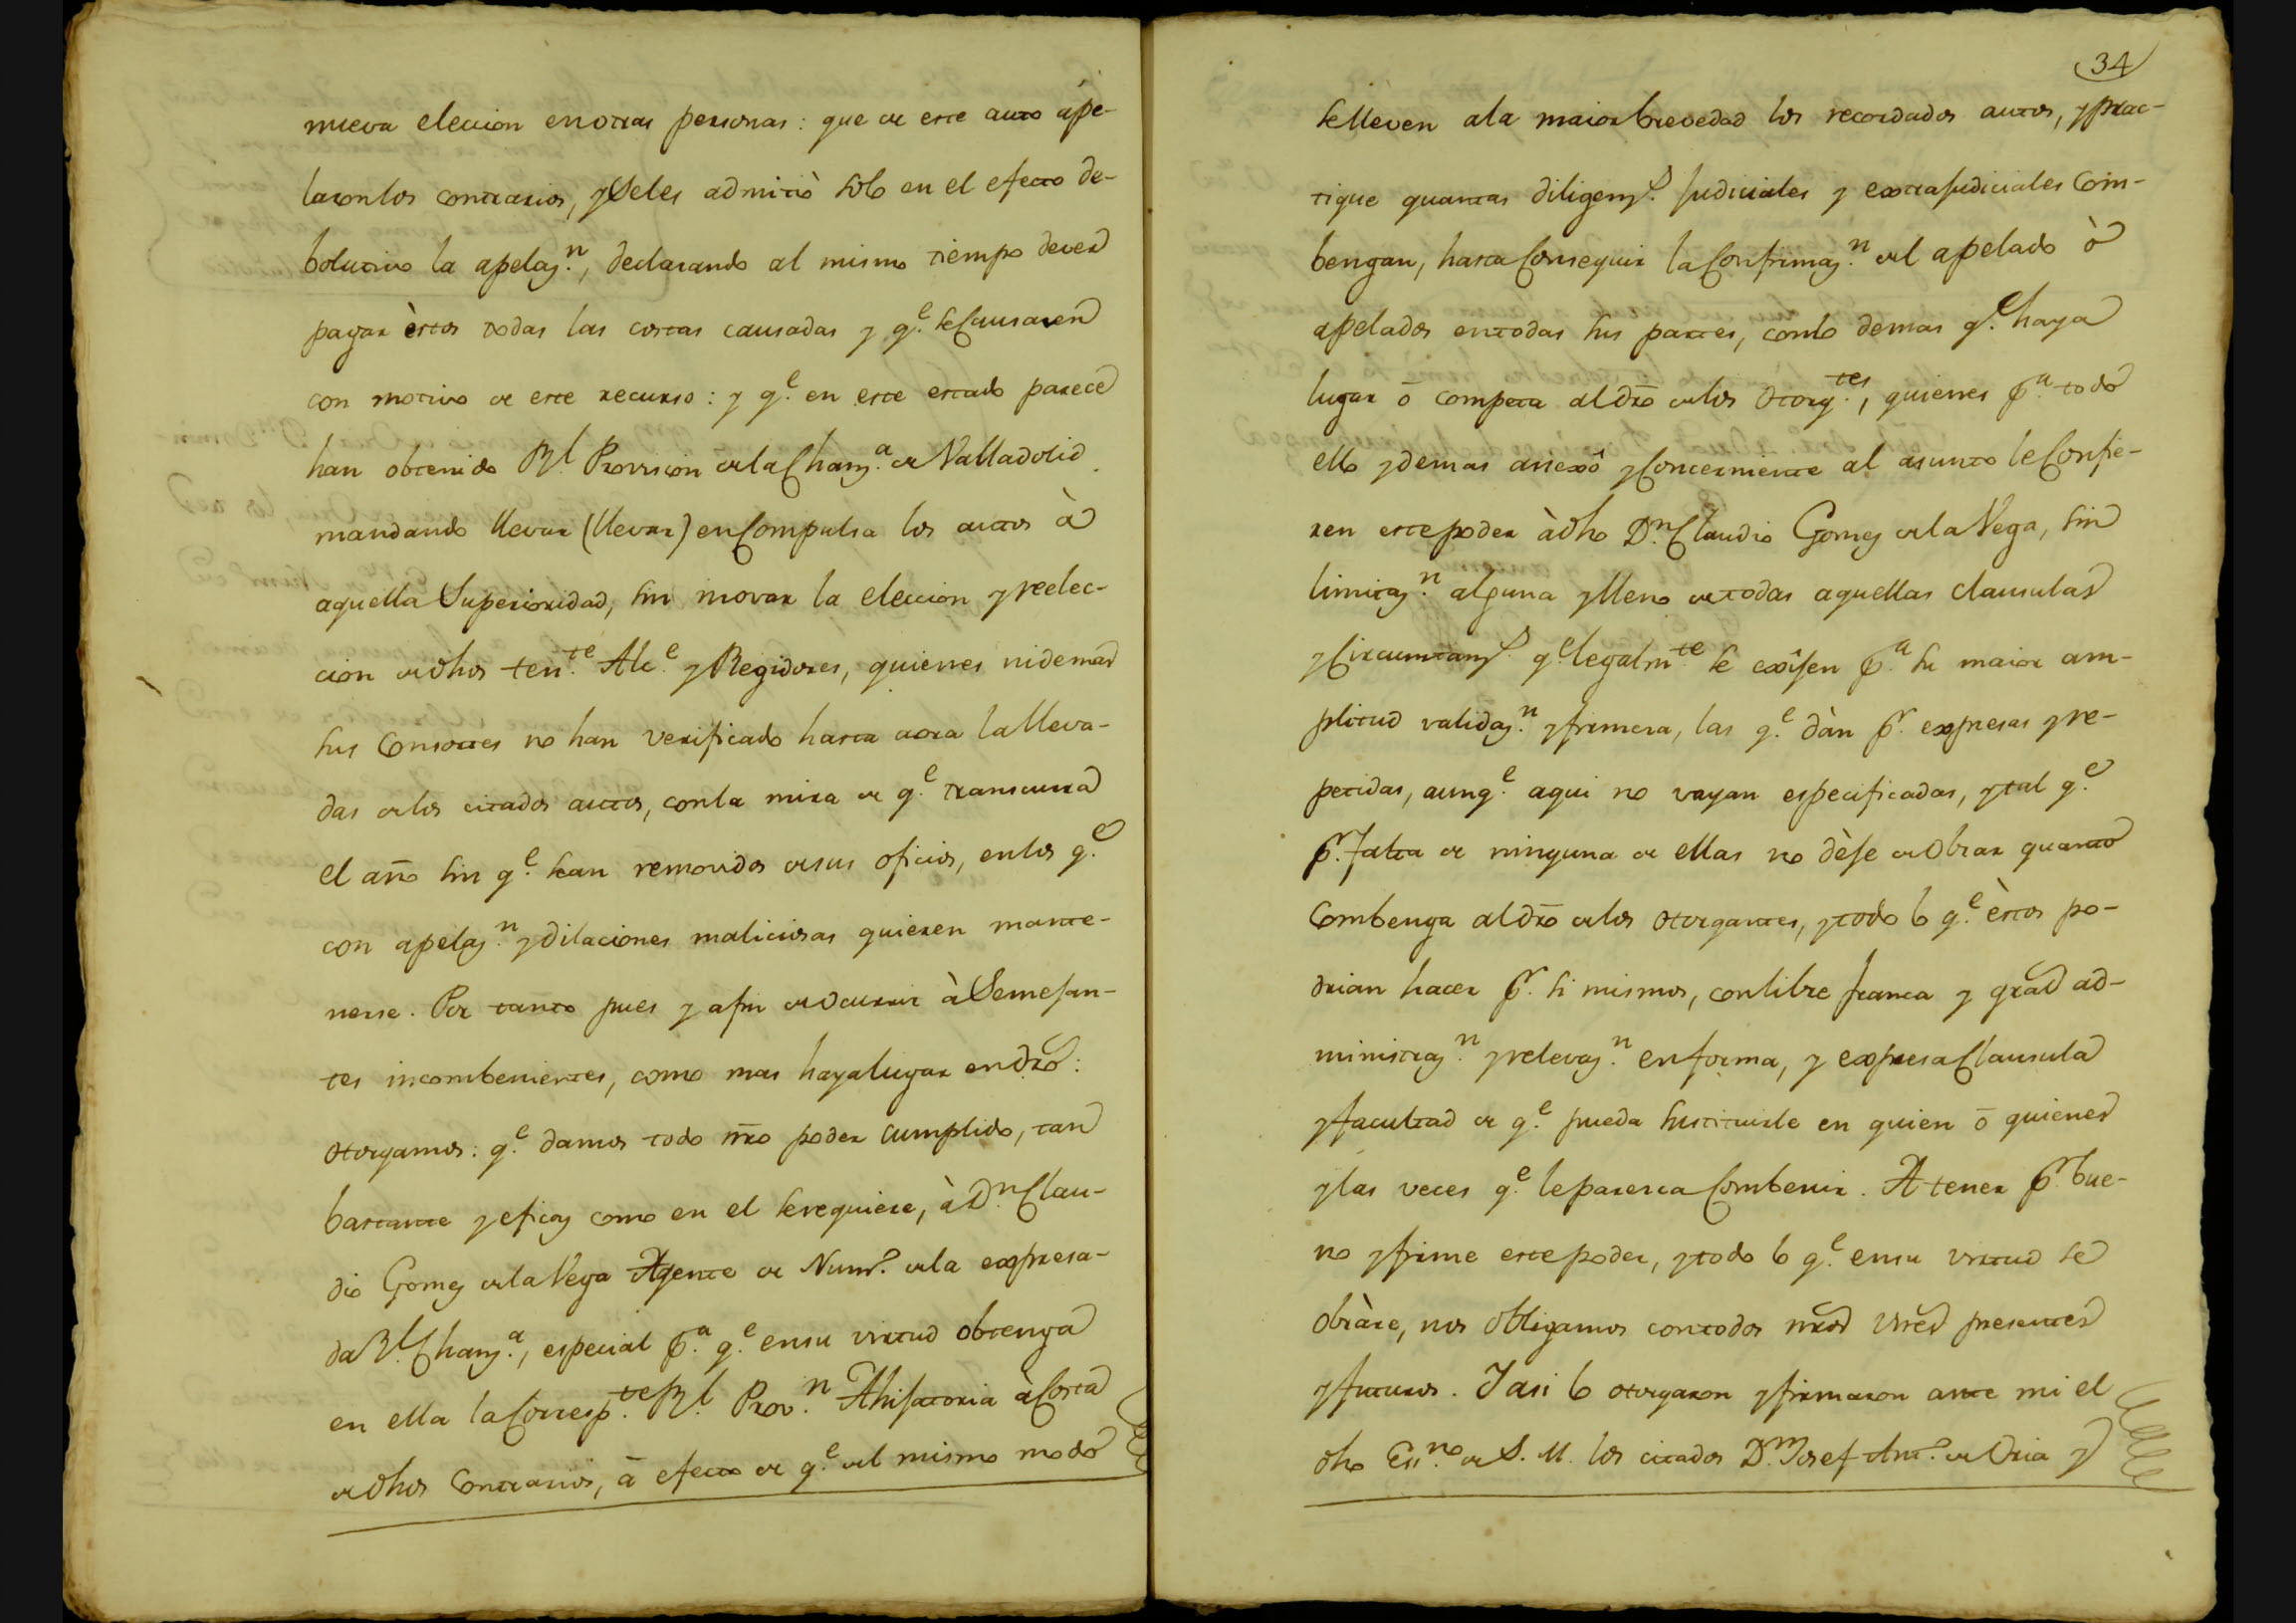 nueva eleccion en otras personas: que de este auto ápe-
laron los contrarios, y Seles admitiò solo en el efecto de-
bolutivo la apelaz.n, declarando al mismo tiempo dever
pagar èstos todas las costas causadas y q.e se Causaren
con motivo de este recurso: y q.e en este estado parece
han obtenido R.l Provision de la Chanz.a de Valladolid
mandando llevar (llevar) en Compulsa los autos à
aquella Superioridad, sin inovar la eleccion y reelec-
cion de dhos ten.te Alc.e y Regidores, quienes ni demas
sus Consortes no han verificado hasta aora la lleva-
das de los citados autos, con la mira de q.e transcurra
el año sin q.e sean removidos de sus oficios, en los q.e
con apelaz.n y dilaciones maliciosas quieren mante-
nerse. Por tanto pues y a fin de Ocurrir à Semejan-
tes incombenientes, como mas haya lugar en dro:
otorgamos: q.e damos todo nro poder cumplido, tan
bastante y eficaz como en el se requiere, à D.n Clau-
dio Gomez de la Vega Agente de Num.o de la expresa-
da R.l Chanz.a, especial p.a q.e en su virtud obtenga
en ella la Corresp.te R.l Prov.n Ahisatoria à Costa
de dhos Contrarios, à efecto de q.e del mismo modo
34
se lleven a la maior brevedad los recordados autos, y prac-
tique quantas diligenz.s Judiciales y extrajudiciales Com-
bengan, hasta Conseguir la Confirmaz.n del apelado ò
apelados en todas sus partes, con lo demas q.e haya
lugar ò competa al dro de los Otorg.tes, quienes p.a todo
ello y demas anexô y Concerniente al asunto le Confie-
ren este poder à dho D.n Claudio Gomez de la Vega, sin
limitaz.n alguna y lleno de todas aquellas clausulas
y Circunstanz.s q.e legalm.te se exîjen p.a su maior am-
plitud validaz.n y firmeza, las q.e dàn p.r expresas y re-
petidas, aunq.e aqui no vayan especificadas, y tal q.e
p.r falta de ninguna de ellas no dèje de Obrar quanto
Combenga al dro de los otorgantes, y todo lo q.e èstos po-
drian hacer p.r si mismos, con libre franca y gral ad-
ministraz.n y relevaz.n en forma, y expresa Clausula
y facultad de q.e pueda sustituirle en quien ò quienes
y las veces q.e le paresca Combenir. A tener p.r bue-
no y firme este poder, y todo lo q.e en su virtud se
obràre, nos Obligamos con todos nros vnes presentes
y futuros. Y asi lo otorgaron y firmaron ante mi el
dho Es.no de S. M. los citados D.n Josef Ant.o de Oria y